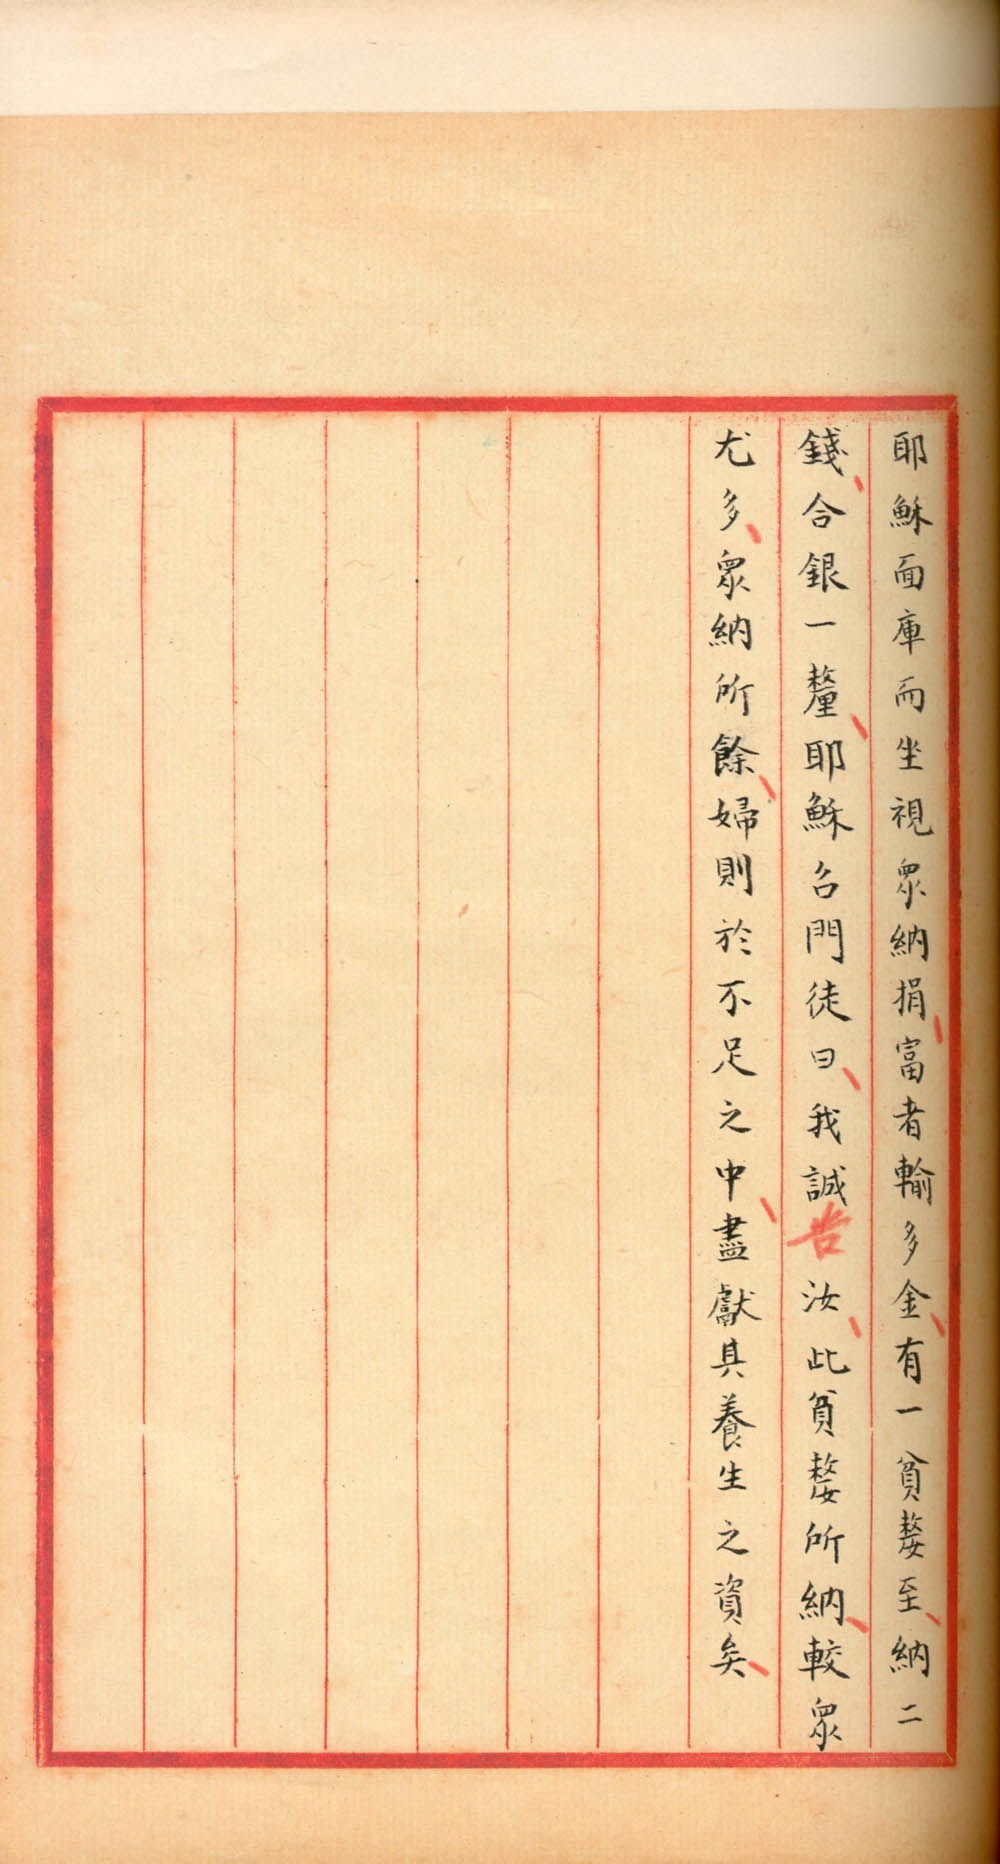 耶穌面庫而坐視眾納捐、富者輸多金、有一貧嫠至、納二
錢、合銀一釐、耶穌召門徒曰、我誠告汝、此貧嫠所納、較眾
尤多、眾納所餘、婦則於不足之中、盡獻其養生之資矣、